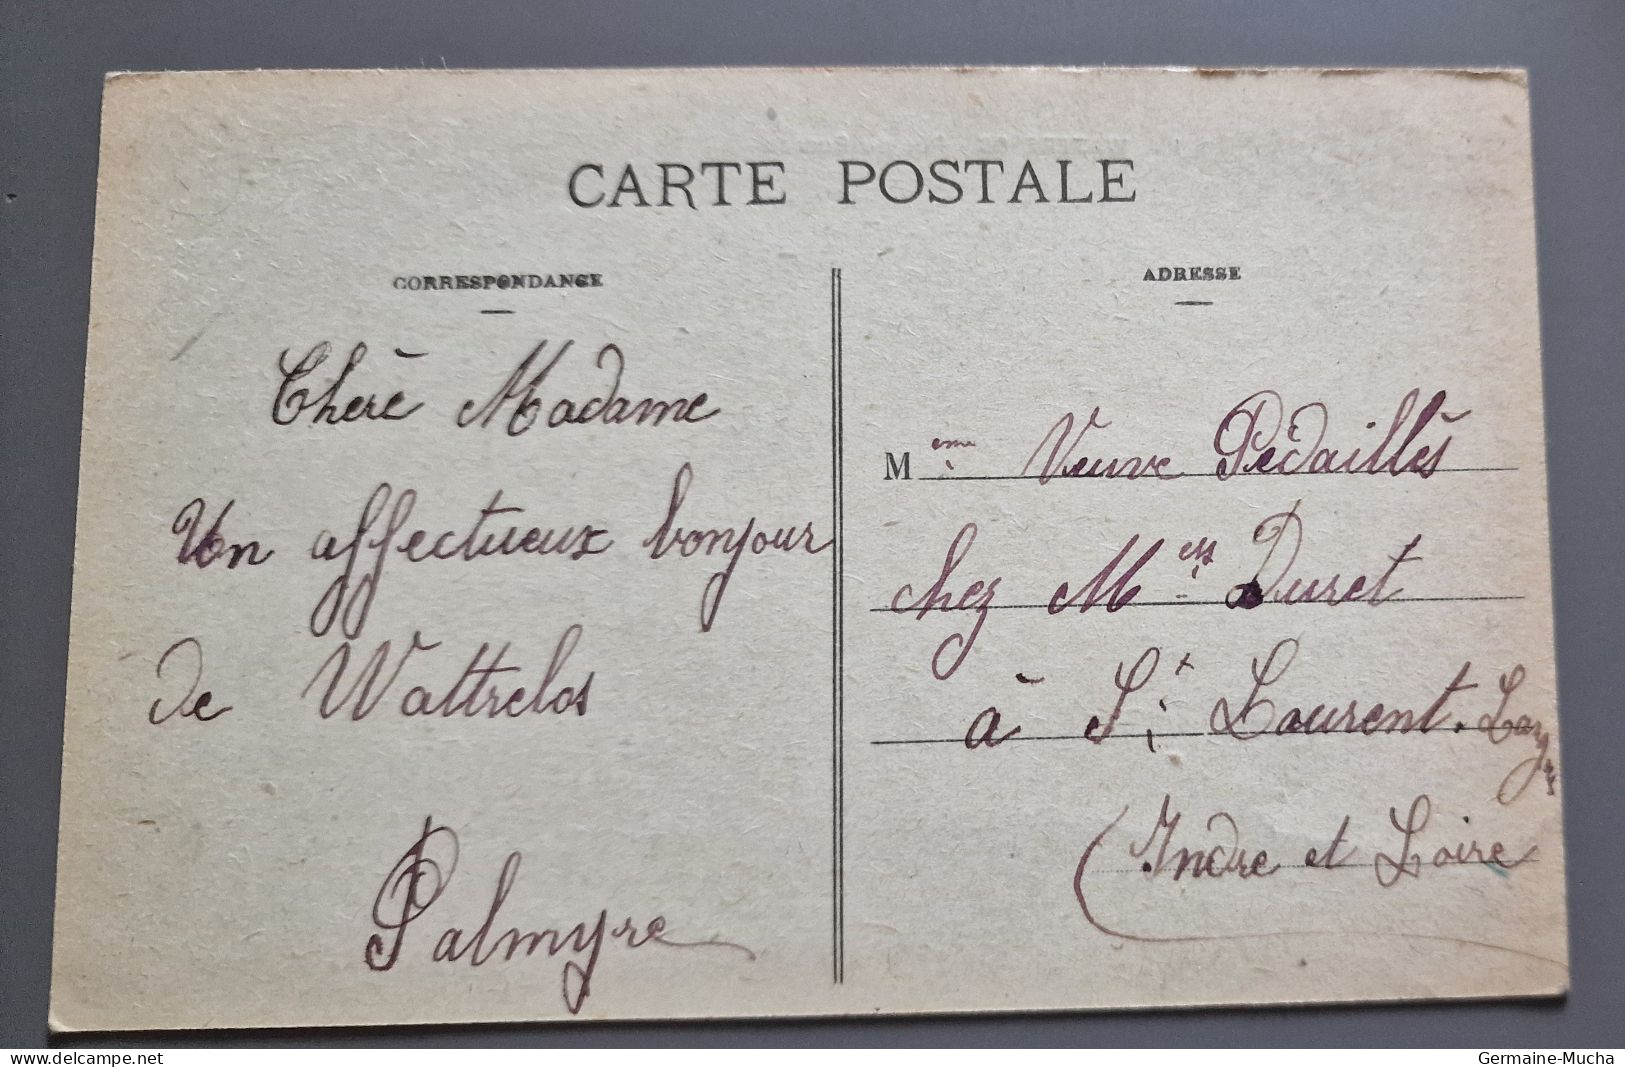 CARTE POSTALE
CORRESPONDANCE
Chère Madame
Un affectueux bonjour
de Wattrelos
Palmyre
ADRESSE
Meme Veuve Pédaillès
chez Mers Duret
à St Laurent.
(Indre et Loire
delcampe.net
Germaine-Mucha